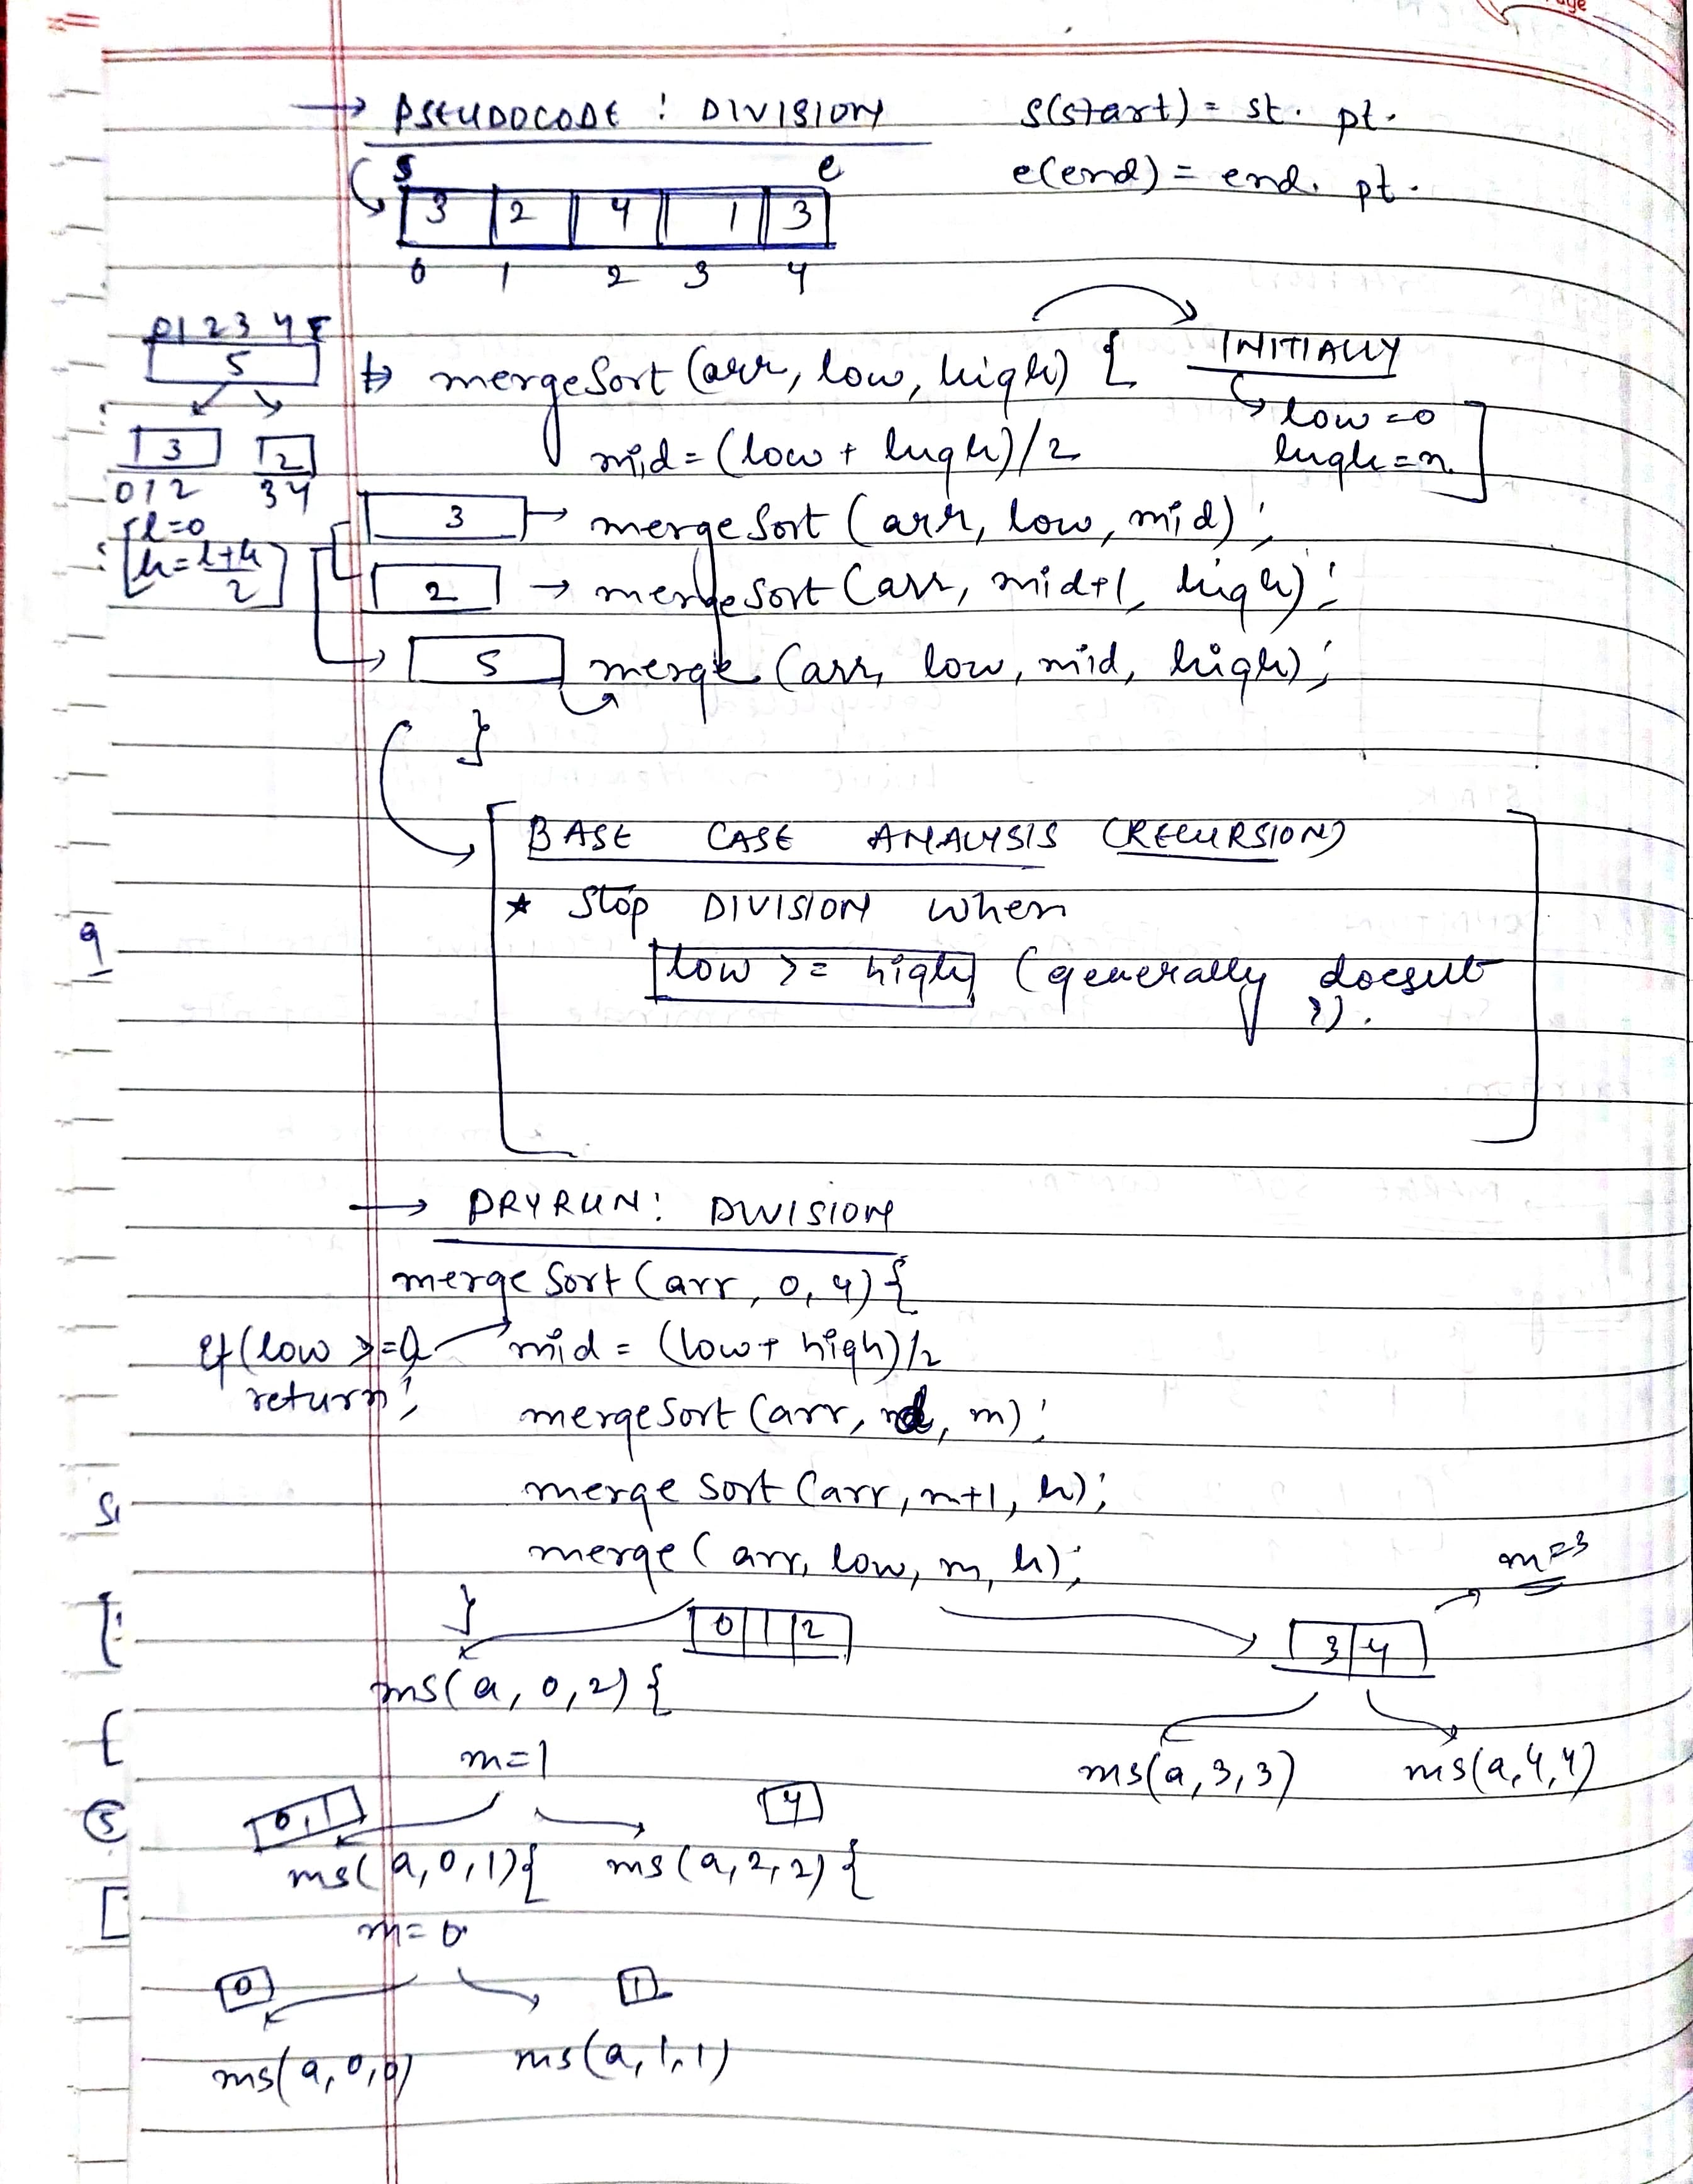 → PSEUDOCODE : DIVISION
s(start) = st. pt.
e(end) = end. pt.
s e
3 2 4 1 3
0 1 2 3 4
0 1 2 3 4
5
3 2
0 1 2 3 4
l=0
h = l+h
2
mergeSort (arr, low, high) {
INITIALLY
low = 0
high = n
mid = (low + high)/2
3 → mergeSort (arr, low, mid);
2 → mergeSort (arr, mid+1, high);
5 merge (arr, low, mid, high);
}
BASE CASE ANALYSIS (RECURSION)
★ Stop DIVISION when
low >= high (generally doesnt
).
→ DRYRUN: DIVISION
mergeSort (arr, 0, 4) {
if (low >=
return;
mid = (low + high)/2
mergeSort (arr, , m);
merge sort (arr, m+1, h);
merge (arr, low, m, h);
}
0 1 2
m=3
3 4
ms(a, 0, 2) {
m=1
ms(a, 3, 3) ms(a, 4, 4)
0, 1
4
ms(a, 0, 1) { ms(a, 2, 2) {
m = 0
0
1
ms(a, 0, 0) ms(a, 1, 1)
9
5